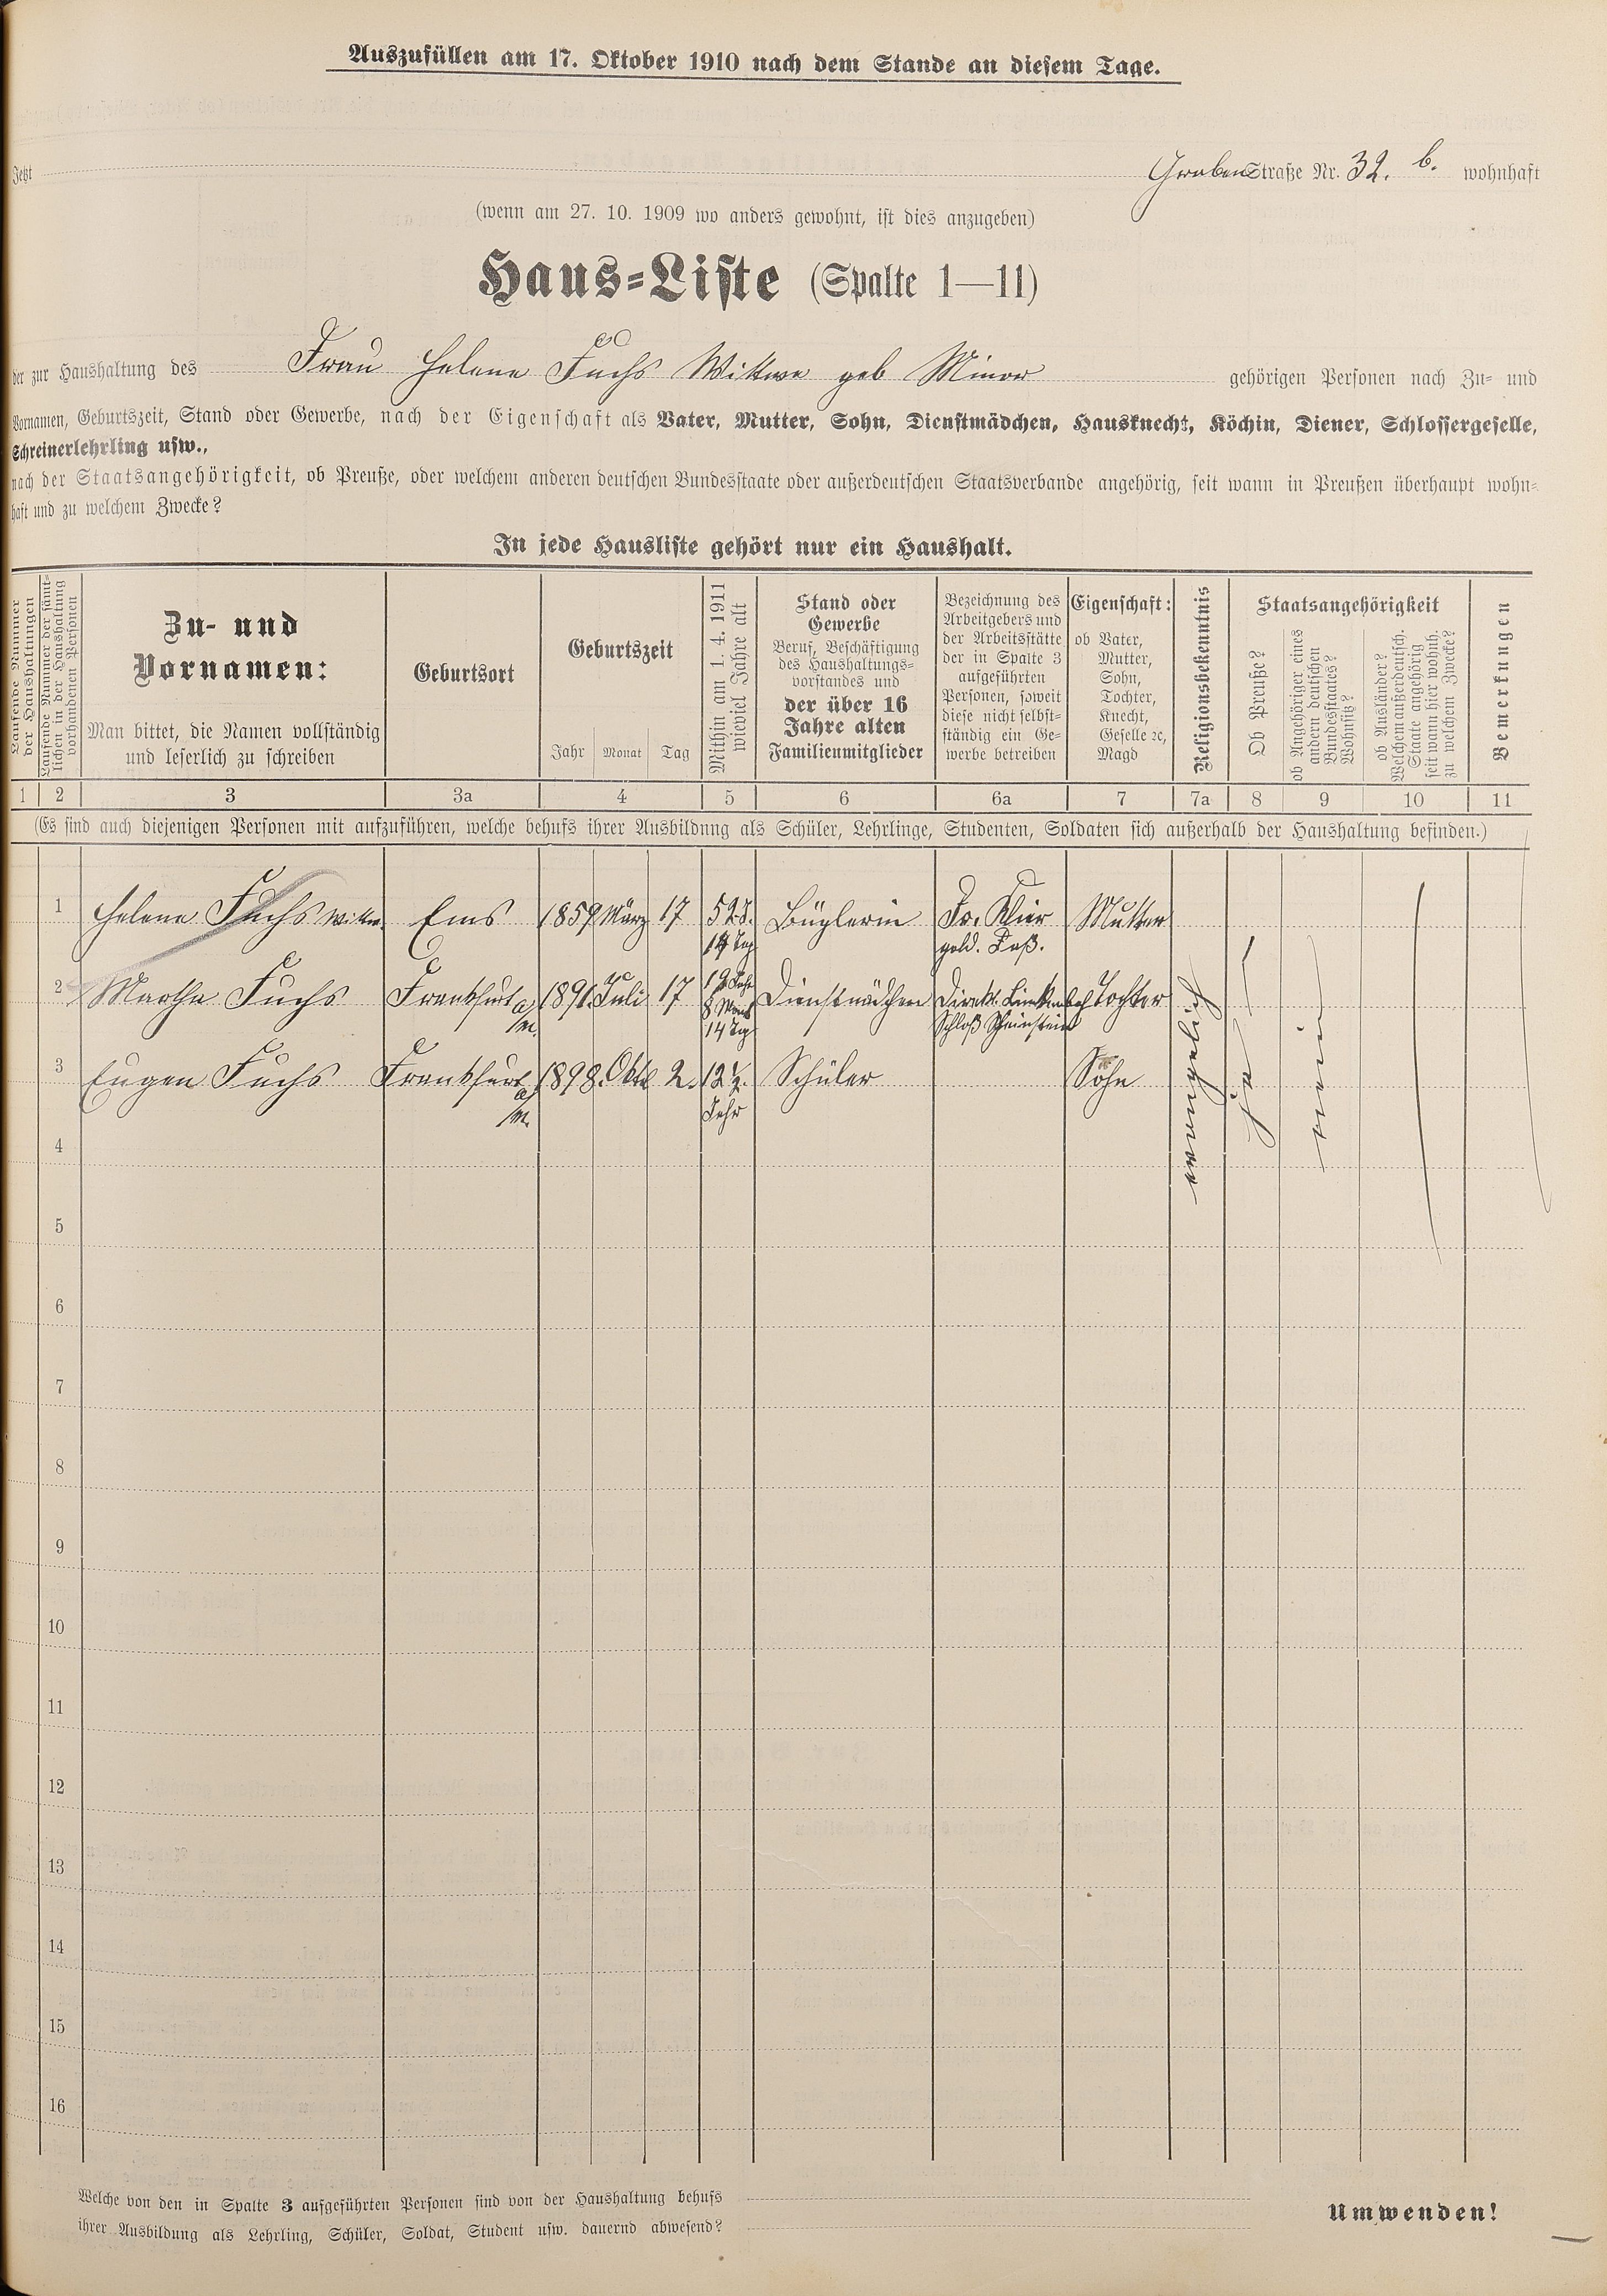 Auszufüllen am 17. Oktober 1910 nach dem Stande an diesem Tage.
Jetzt Graben Straße Nr. 32. b. wohnhaft
(wenn am 27. 10. 1909 wo anders gewohnt, ist dies anzugeben)
Haus-Liste (Spalte 1—11)
der zur Haushaltung des Frau Helene Fuchs Wittwe geb Minor gehörigen Personen nach Zu- und
Vornamen, Geburtszeit, Stand oder Gewerbe, nach der Eigenschaft als Vater, Mutter, Sohn, Dienstmädchen, Hausknecht, Köchin, Diener, Schlossergeselle,
Schreinerlehrling usw.,
nach der Staatsangehörigkeit, ob Preuße, oder welchem anderen deutschen Bundesstaate oder außerdeutschen Staatsverbande angehörig, seit wann in Preußen überhaupt wohn-
haft und zu welchem Zwecke?
In jede Hausliste gehört nur ein Haushalt.
Laufende Nummer
der Haushaltungen
Laufende Nummer der sämt-
lichen in der Haushaltung
vorhandenen Personen
Zu- und
Vornamen:
Man bittet, die Namen vollständig
und leserlich zu schreiben
Geburtsort
Geburtszeit
Jahr Monat Tag
Mithin am 1. 4. 1911
wieviel Jahre alt
Stand oder
Gewerbe
Beruf, Beschäftigung
des Haushaltungs-
vorstandes und
der über 16
Jahre alten
Familienmitglieder
Bezeichnung des
Arbeitgebers und
der Arbeitsstätte
der in Spalte 3
aufgeführten
Personen, soweit
diese nicht selbst-
ständig ein Ge-
werbe betreiben
Eigenschaft:
ob Vater,
Mutter,
Sohn,
Tochter,
Knecht,
Geselle ec,
Magd
Religionsbekenntnis
Staatsangehörigkeit
Ob Preuße?
ob Angehöriger eines
andern deutschen
Bundesstaates?
Wohnsitz?
ob Ausländer?
Welchem außerdeutsch.
Staate angehörig
seit wann hier wohnh.
zu welchem Zwecke?
Bemerkungen
1 2 3 3a 4 5 6 6a 7 7a 8 9 10 11
(Es sind auch diejenigen Personen mit aufzuführen, welche behufs ihrer Ausbildung als Schüler, Lehrlinge, Studenten, Soldaten sich außerhalb der Haushaltung befinden.)
1 Helene Fuchs Wittw. Ems 1859 März 17 52 J. Büglerin Fr. Klier Mutter
14 Tag gold. Faß.
2 Martha Fuchs Frankfurt a/M. 1891. Juli 17 19 Jahr Dienstmädchen Direkt. Tochter
8 Mon
14 Tg Schloß
3 Eugen Fuchs Frankfurt a/M. 1898. Okt 2. 12½. Schüler Sohn
Jahr
ja
nein
4
5
6
7
8
9
10
11
12
13
14
15
16
Welche von den in Spalte 3 aufgeführten Personen sind von der Haushaltung behufs
ihrer Ausbildung als Lehrling, Schüler, Soldat, Student usw. dauernd abwesend?
Umwenden!